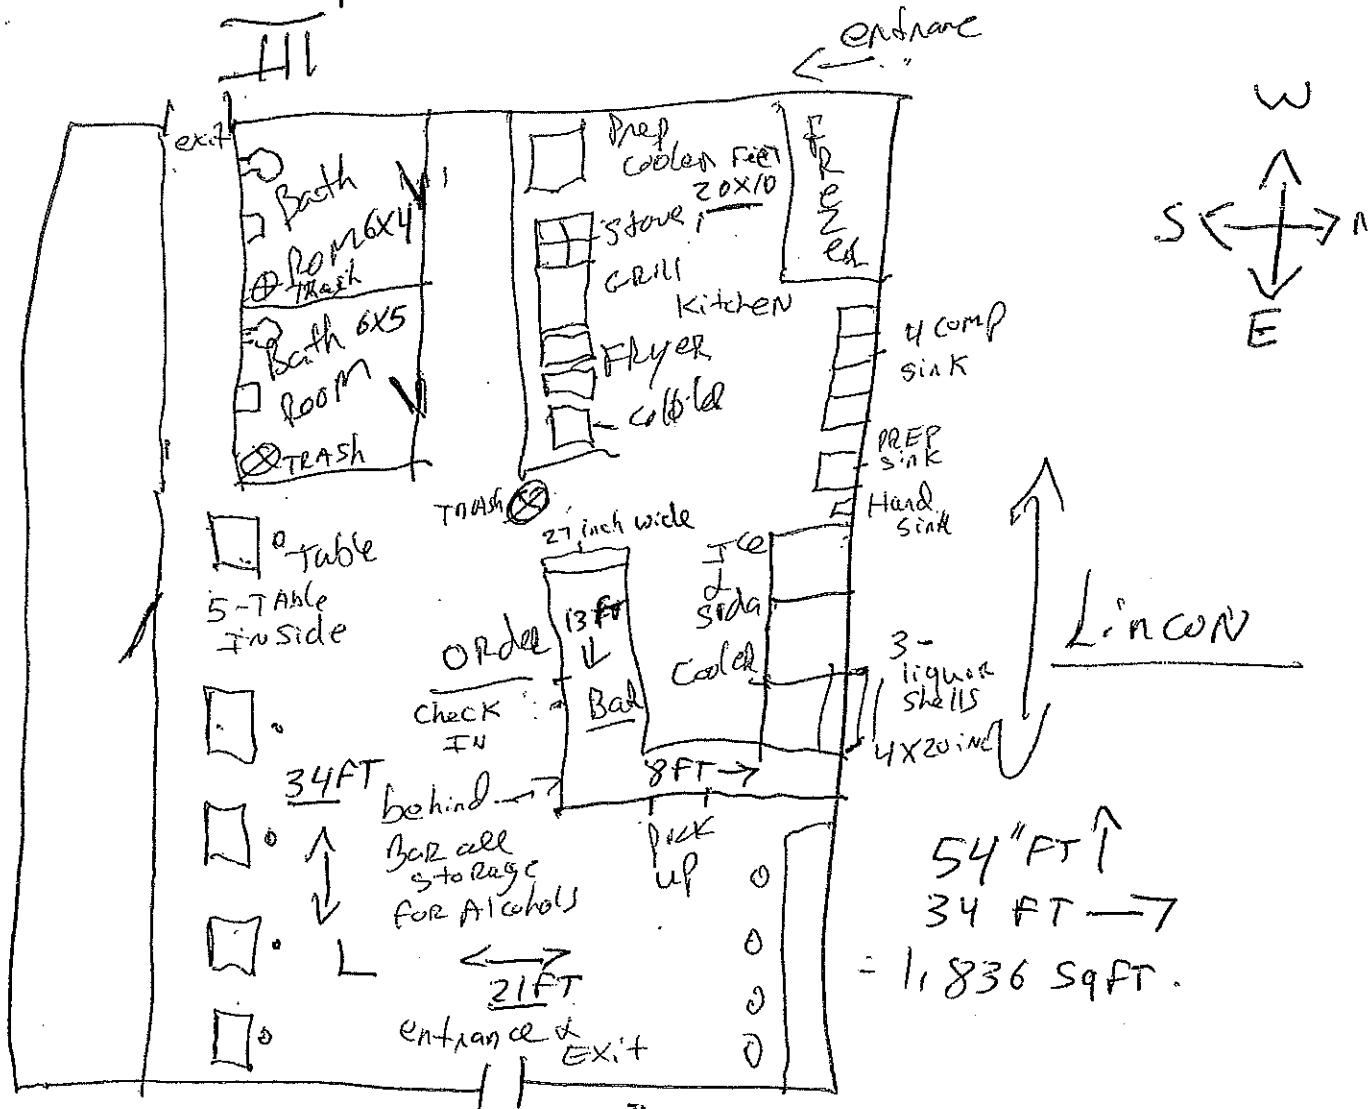 entrane
exit
W
S
E
Bath
ROM 6X4
TRash
Bath 6X5
ROOM
TRASH
Prep
Cooler FEET
20X10
Stove
GRill
KitcheN
FRyER
FRezer
4 comp
sink
PREP
sink
Hand
sink
TRASh
27 inch wide
Table
5-TAble
INside
ORdeR
check
IN
13 FT
Bar
ICe
&
Soda
Cooler
3-
liquor
shells
4X20 inc
LincoN
8FT
34FT
behind
Bar all
storage
FOR Alcohols
Pick
up
21FT
entrance &
EXit
54" FT
34 FT
= 1,836 SqFT.